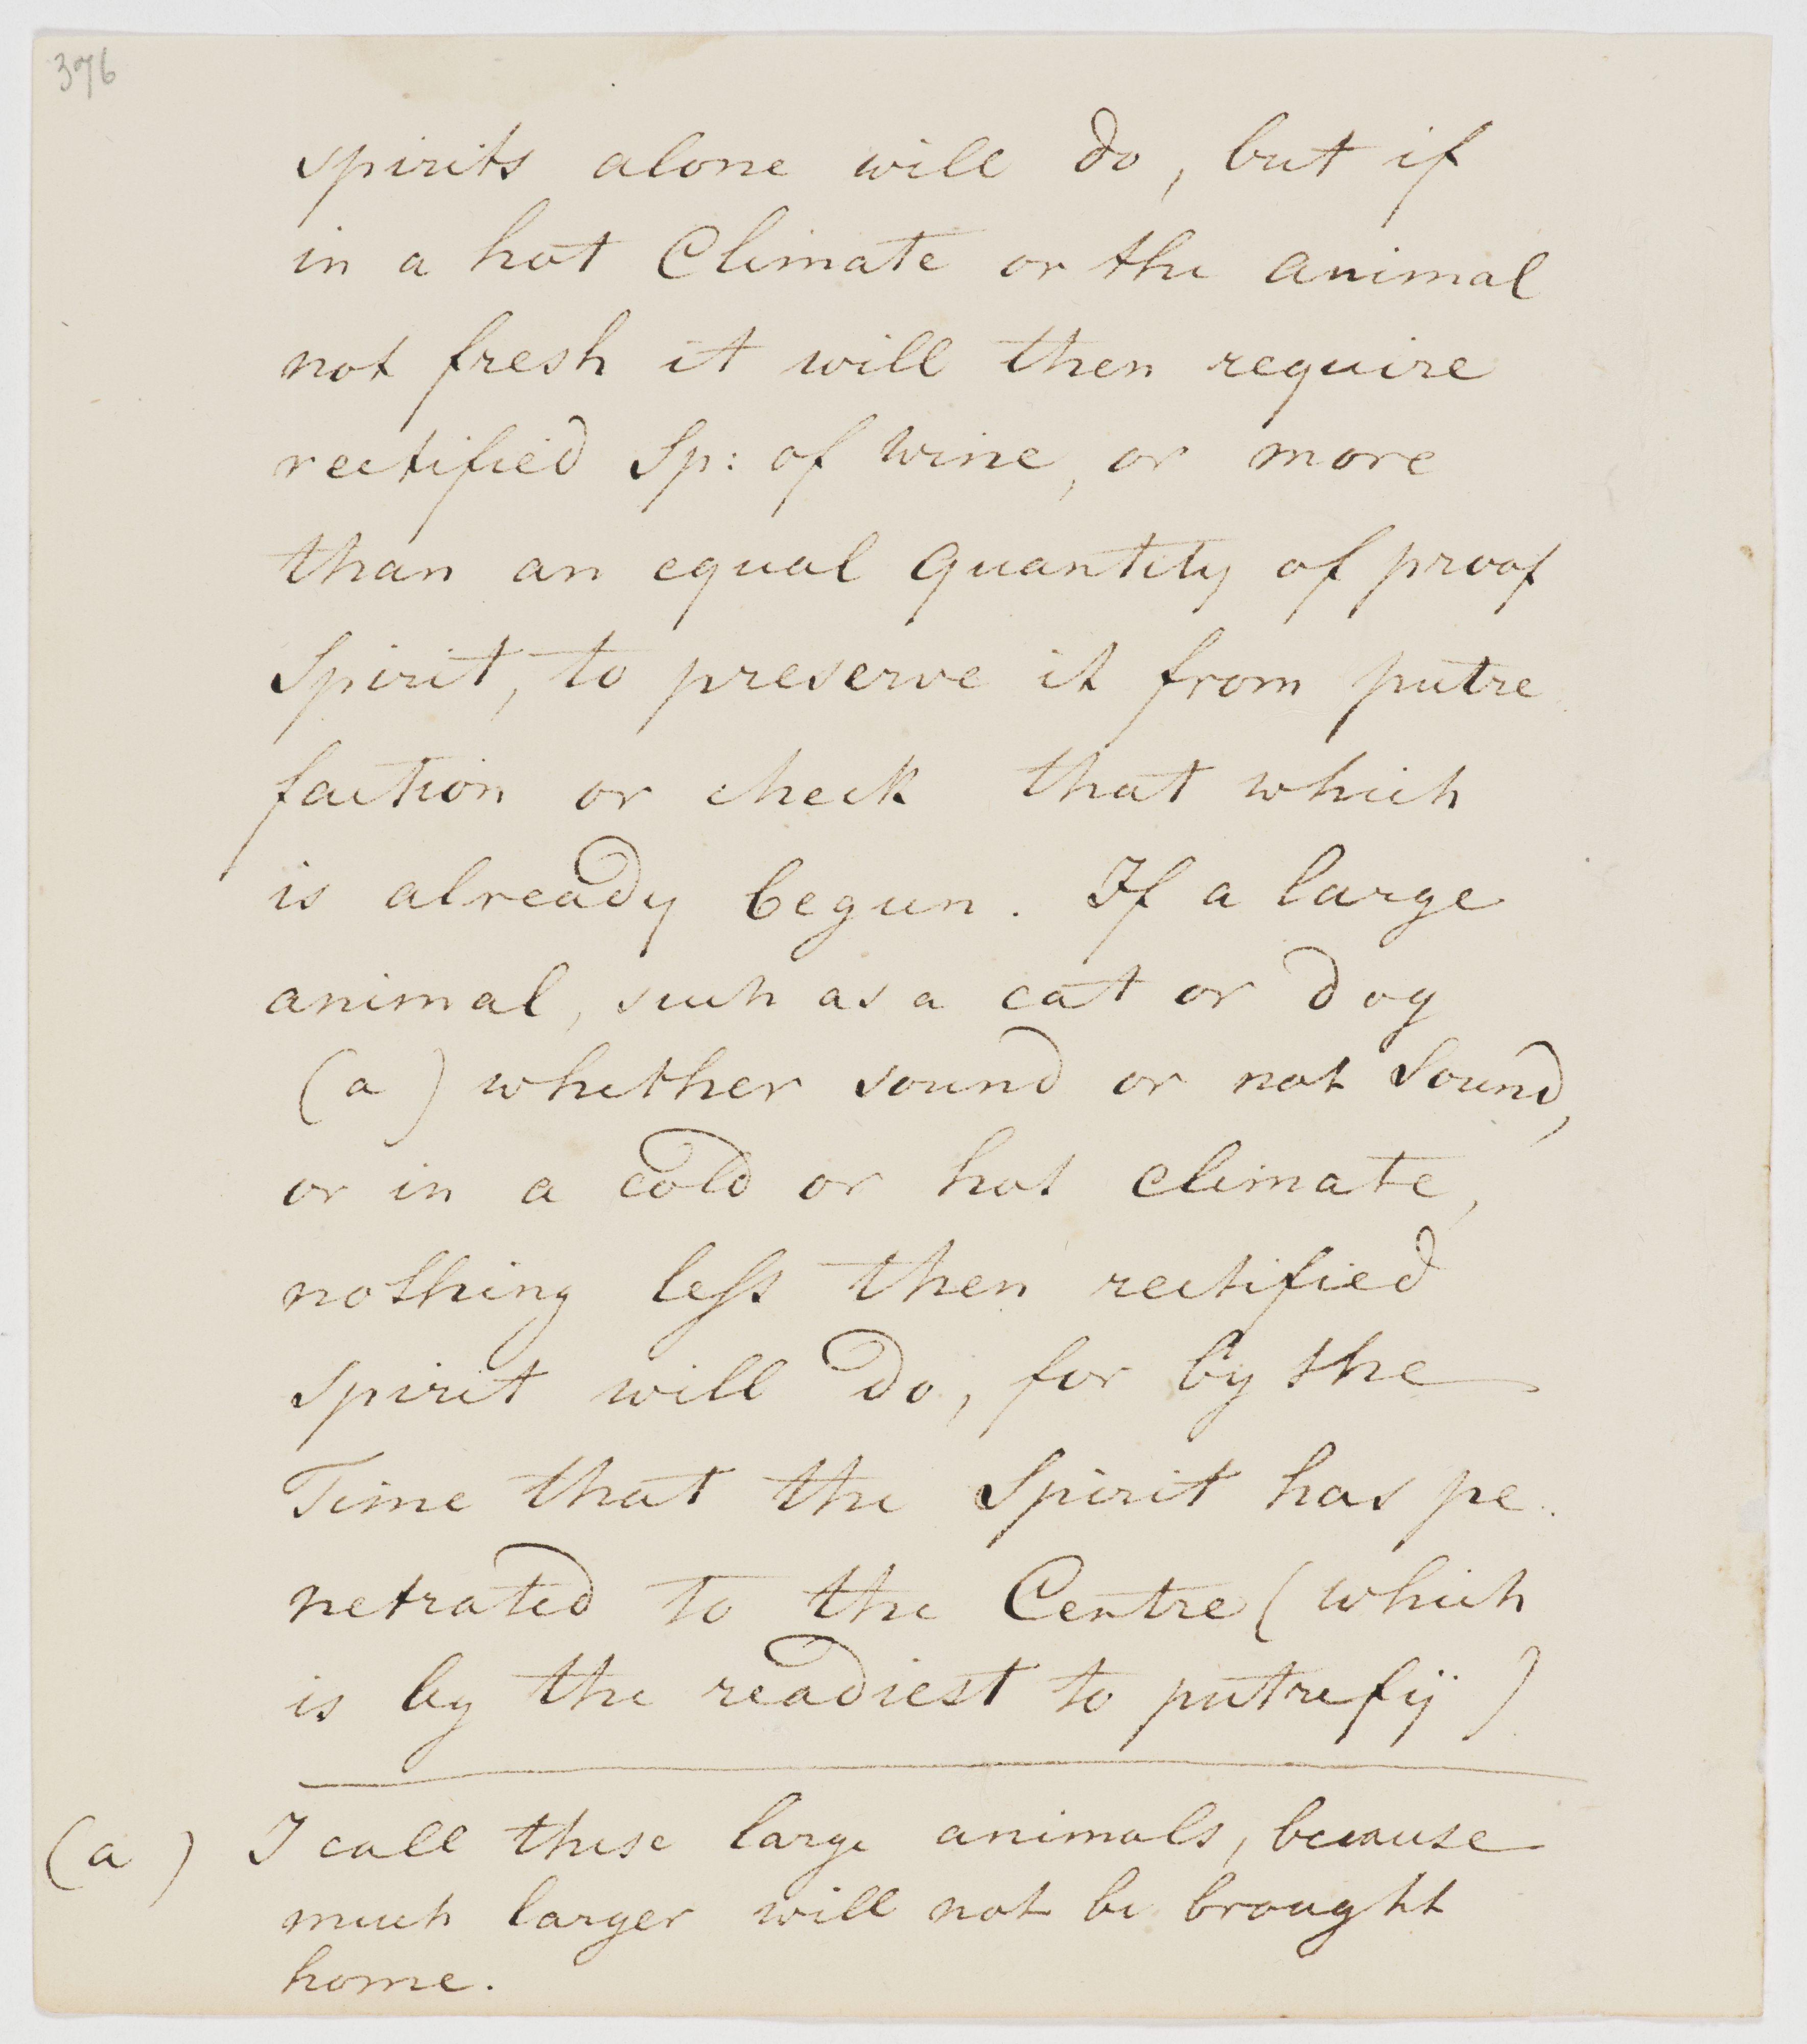 376
spirits alone will do, but if
in a hot Climate or the animal
not fresh it will then require
rectified Sp: of wine, or more
than an equal quantity of proof
Spirit, to preserve it from putre
faction or check that which
is already begun. If a large
animal, such as a cat or dog
(a) whether sound or not Sound,
or in a cold or hot climate,
nothing leſs then rectified
spirit will do, for by the
Time that the Spirit has pe
netrated to the Centre (which
is by the readiest to putrefy)
(a) I call these large animals, because
much larger will not be brought
home.